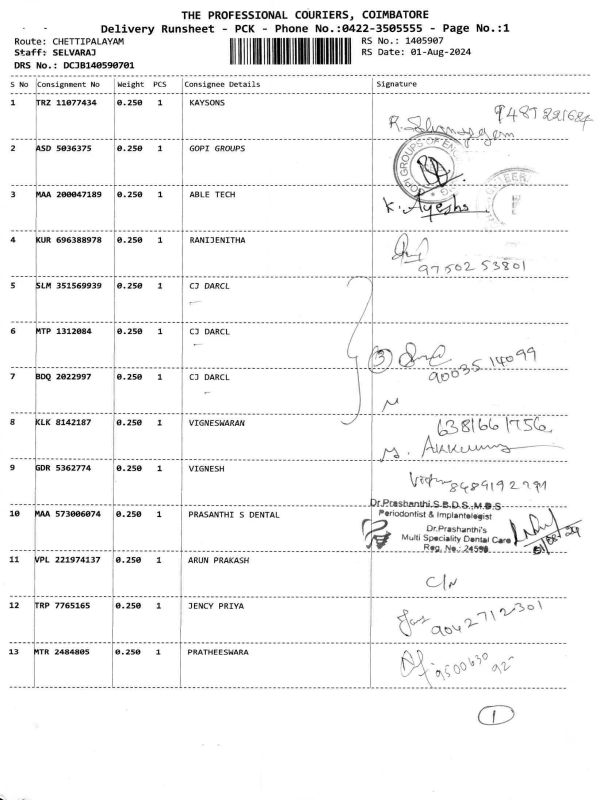 THE PROFESSIONAL COURIERS, COIMBATORE
Delivery Runsheet - PCK - Phone No.:0422-3505555 - Page No.:1
Route: CHETTIPALAYAM RS No.: 1405907
Staff: SELVARAJ RS Date: 01-Aug-2024
DRS No.: DCJB140590701
S No Consignment No Weight PCS Consignee Details Signature
1 TRZ 11077434 0.250 1 KAYSONS
2 ASD 5036375 0.250 1 GOPI GROUPS
3 MAA 200047189 0.250 1 ABLE TECH K. Ayesha
4 KUR 696388978 0.250 1 RANIJENITHA
9750253801
5 SLM 351569939 0.250 1 CJ DARCL
6 MTP 1312084 0.250 1 CJ DARCL
3 9003514099
7 BDQ 2022997 0.250 1 CJ DARCL
8 KLK 8142187 0.250 1 VIGNESWARAN 6381661756
9 GDR 5362774 0.250 1 VIGNESH
10 MAA 573006074 0.250 1 PRASANTHI S DENTAL
Dr.Prashanthi.S.B.D.S.,M.D.S
Periodontist & Implantologist
Dr.Prashanthi's
Multi Speciality Dental Care
Reg. No.: 24596
11 VPL 221974137 0.250 1 ARUN PRAKASH
C/N
12 TRP 7765165 0.250 1 JENCY PRIYA
9042712301
13 MTR 2484805 0.250 1 PRATHEESWARA
1